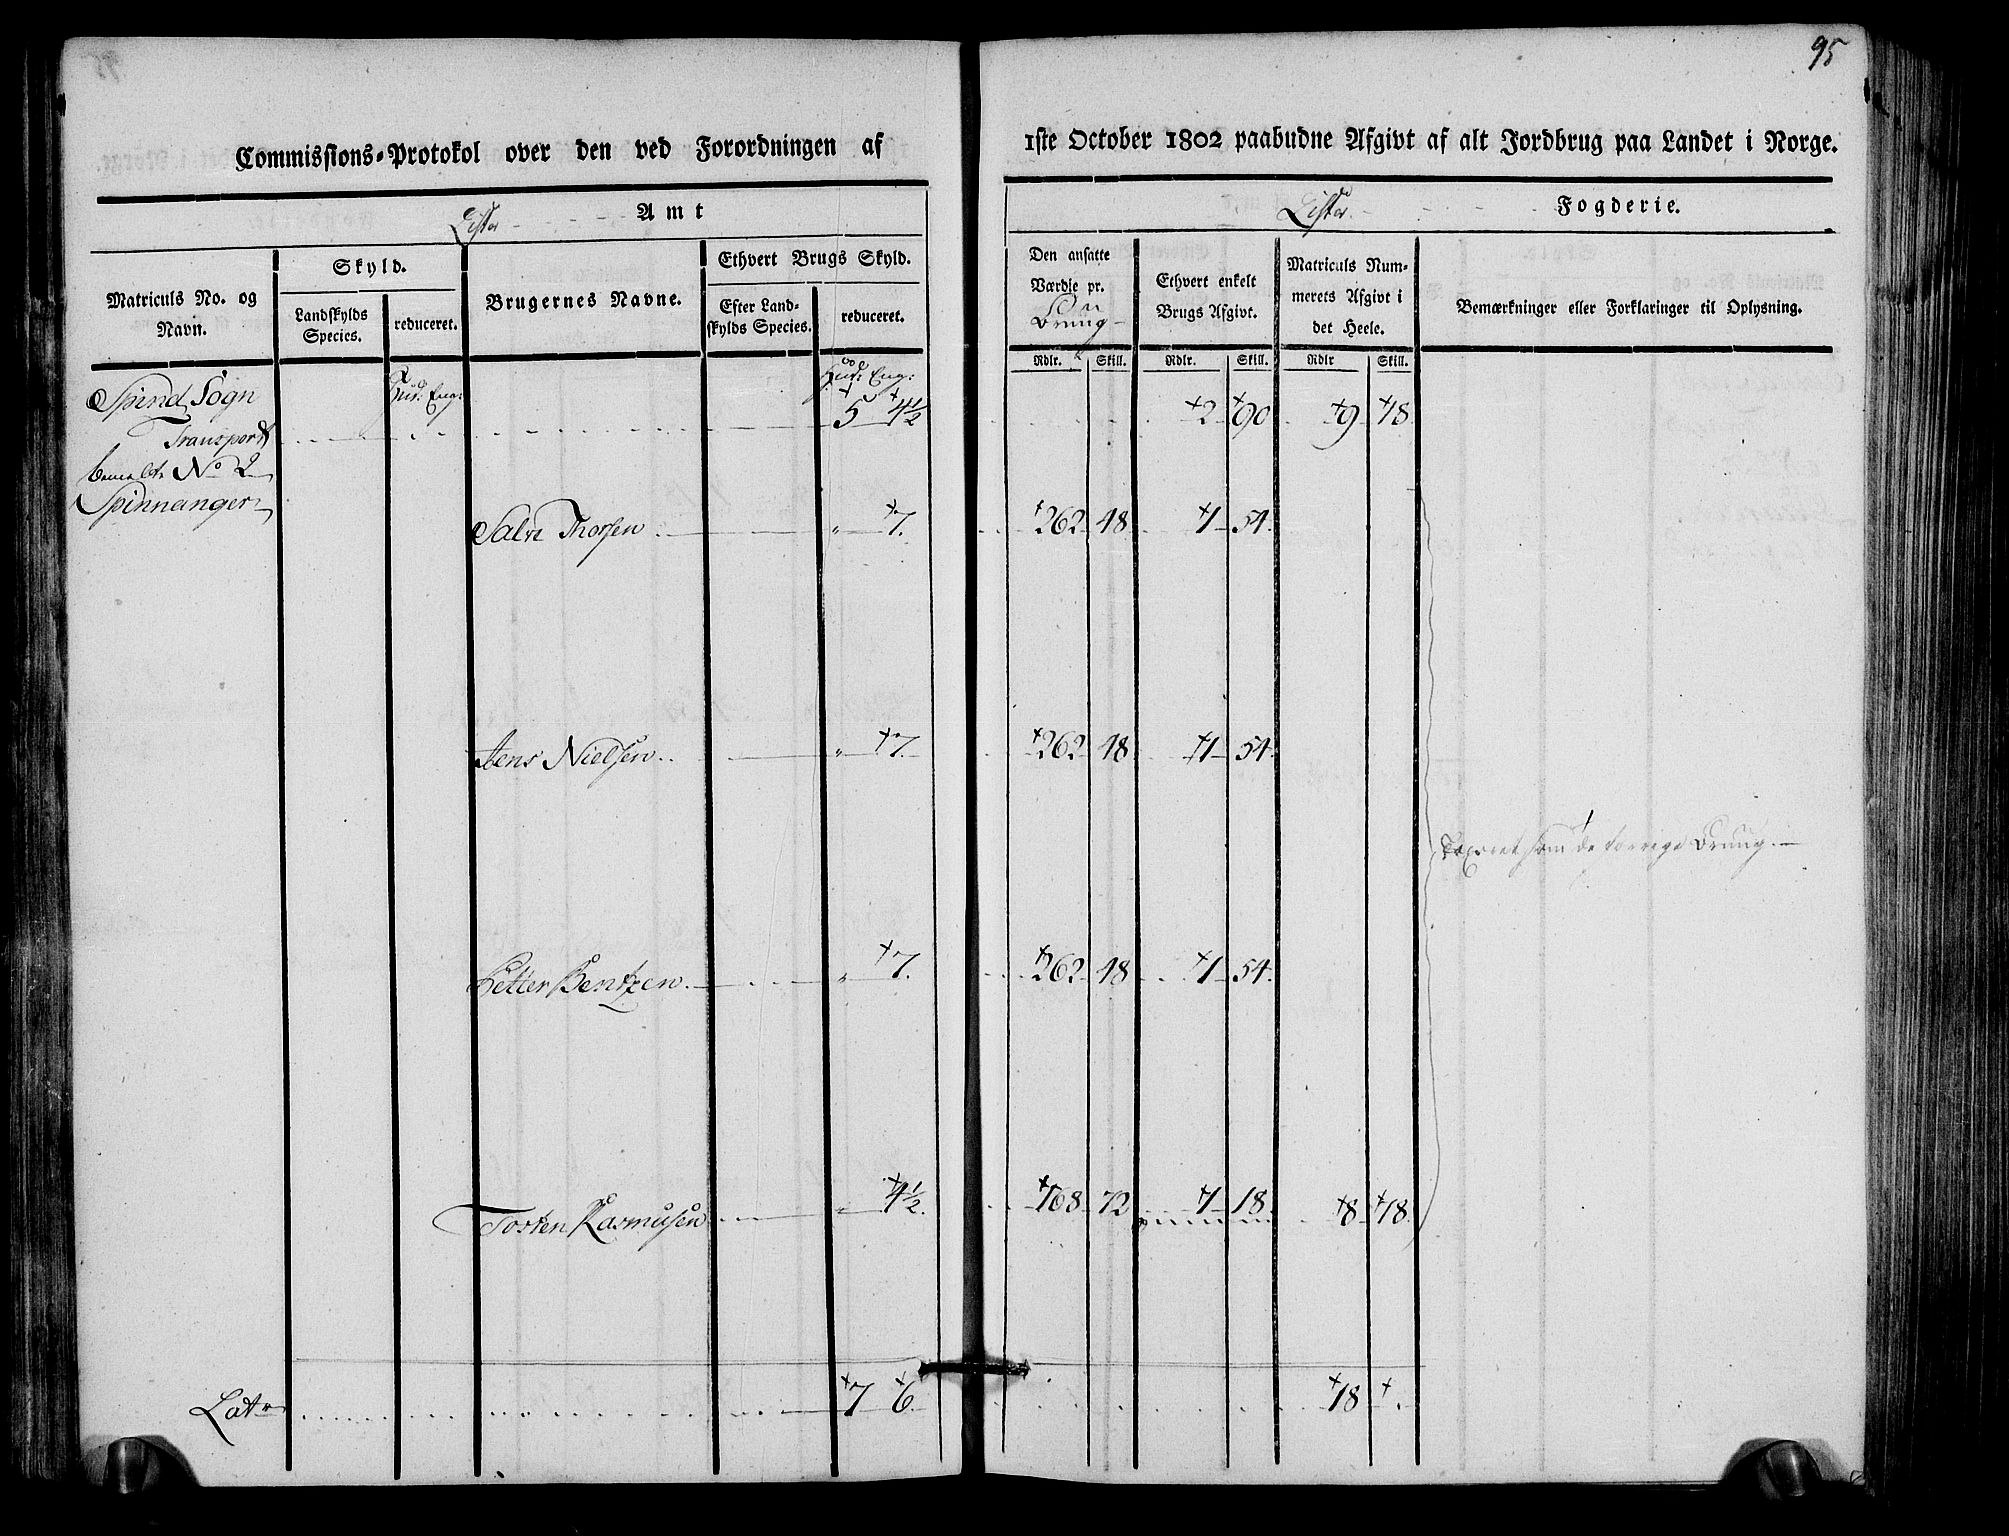 95
Commissions-Protokol over den ved Forordningen af 1ste October 1802 paabudne Afgivt af alt Jordbrug paa Landet i Norge.
Lister Amt
Lister Fogderie.
Matriculs No. og Navn.
Skyld.
Landskylds Species.
reduceret.
Brugernes Navne.
Ethvert Brugs Skyld.
Efter Landskylds Species.
reduceret.
Den ansatte Værdie pr. Bruug
Rdlr. Skill.
Ethvert enkelt Brugs Afgivt.
Rdlr. Skill.
Matriculs Nummerets Afgivt i det Heele.
Rdlr Skill.
Bemærkninger eller Forklaringer til Oplysning.
Hud. Eng:
Hud: Eng:
Spind Sogn
Transport 5 4½ 2 90 9 78
No 2
Spinnanger
Salve Thorsen " 7. 262 48 1 54
Jens Nielsen " 7. 262 48 1 54
Taxeret som de forrige Bruug.
Petter Bentzen " 7. 262 48 1 54
Tosten Rasmusen " 4½. 168 72 1 18 8 18
Lat 7 6 18